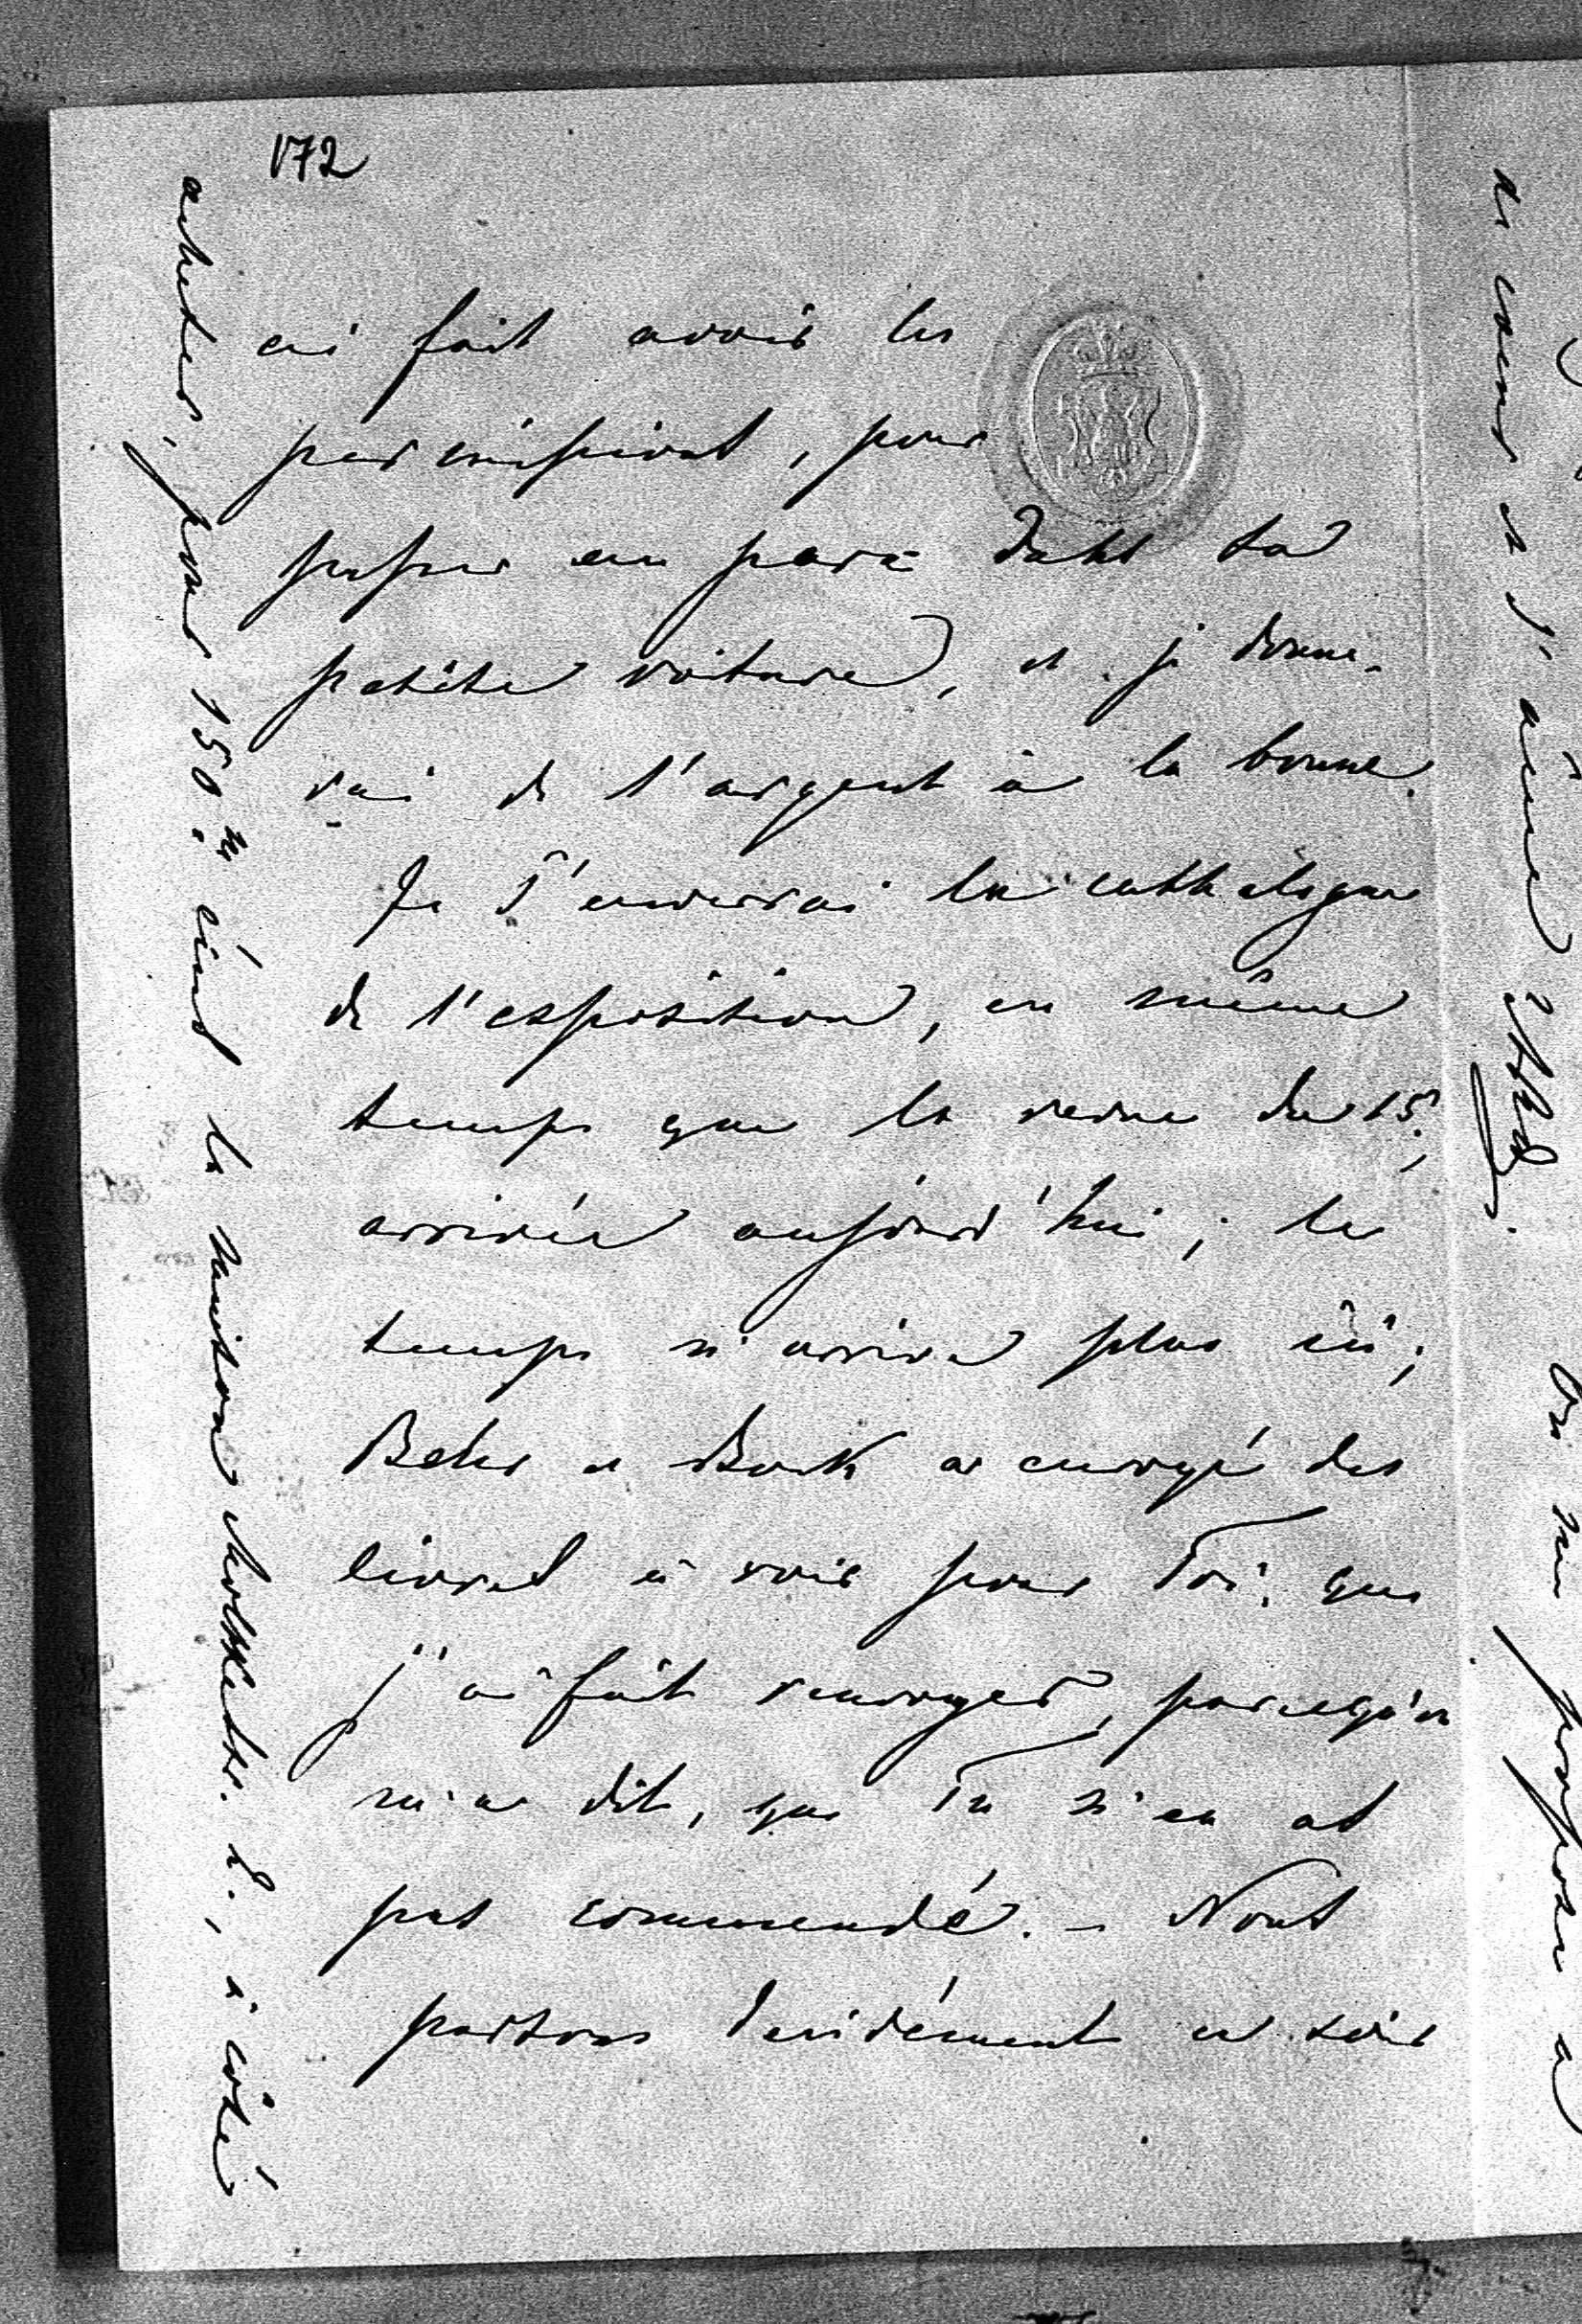 172
ai fait avoir les
permission, pour
passer au parc dans sa
petite voiture, et je donne-
rai de l'argent à la bonne.
Je T'enverrai le cathalogue
de l'exposition, en même
temps que la revue du 15,
arrivée aujourd'hui; le
temps n'arrive plus ici;
Behr et Bock a envoyé des
livres à voir pour Toi, que
j'ai fait renvoyer, parcequ'on
m'a dit, que Tu n'en as
pas commandé. - Nous
partons décidément ce soir
acheter, pour 150. m. c'est la maison Moltkestr. 2., à côté